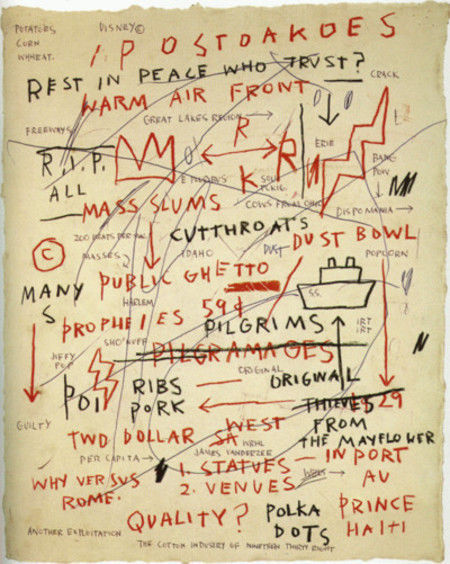 POTATOES
CORN
WHHEAT.
DISNEY©
1. POSTOAKOES
REST IN PEACE WHO TRUST?
WARM AIR FRONT
CRACK
GREAT LAKES REGION →
FREEWAYS
R
ERIE
R.I.P.
R
BANG
POW
K
ALL
COWS FROM OHIO
DISPOMANIA →
MASS SLUMS
CUTTHROATS
DUST
DUST BOWL
©
MASSES
IDAHO
POPCORN
PUBLIC GHETTO
MANY
S
HARLEM
S.S.
PROPHEIES 59¢
PILGRIMS
IRT
IRT
SHO'NUFF
PILGRAMAGES
JIFFY
POP
ORIGINAL
ORIGINAL
POI
RIBS
PORK
THIEVES
29
GUILTY
WEST
FROM
TWO DOLLAR SA
THE MAYFLOWER
WRHL
JAMES VANDERZEE
PER CAPITA →
1. STATUES — IN PORT
2. VENUES
AU
WHY VERSUS
ROME.
PRINCE
QUALITY?
POLKA
DOTS
HAITI
ANOTHER EXPLOITATION
THE COTTON INDUSERY OF NINETEEN THIRTY EIGHT